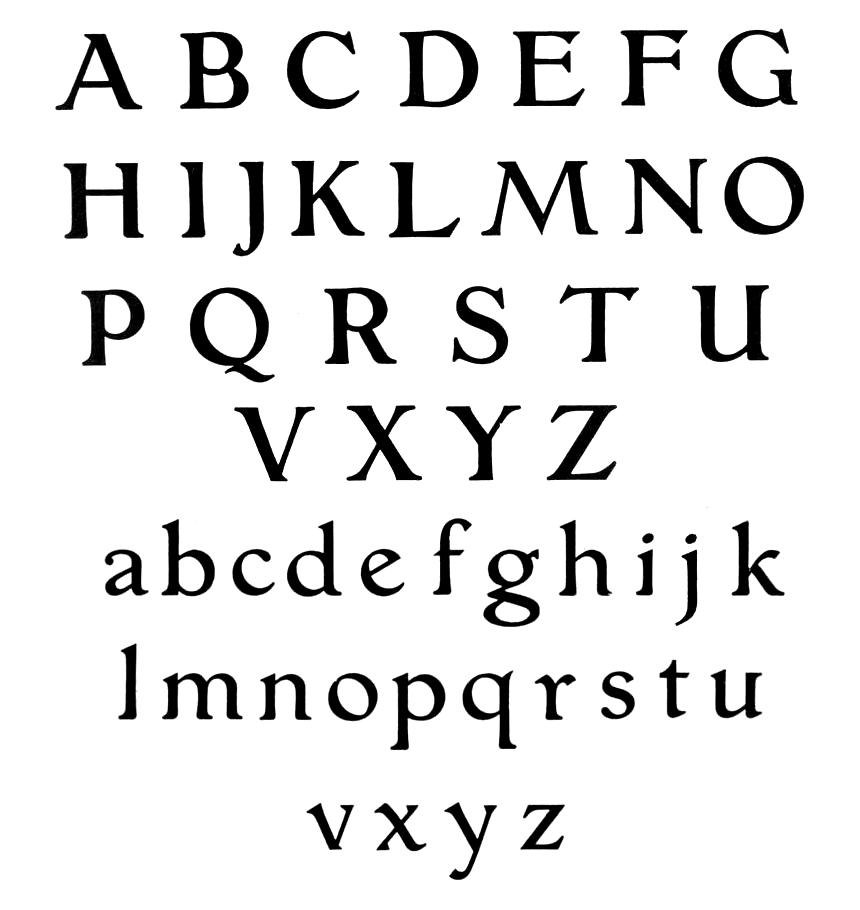 A B C D E F G
H I J K L M N O
P Q R S T U
V X Y Z
a b c d e f g h i j k
l m n o p q r s t u
v x y z